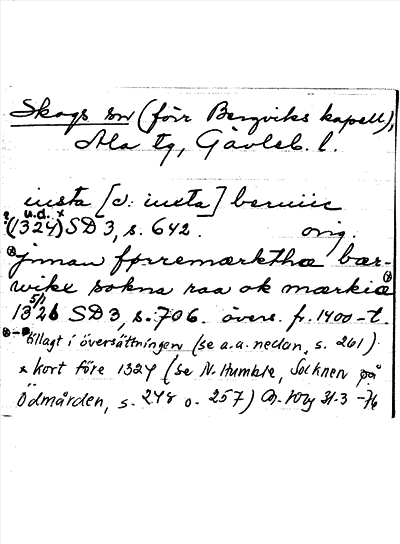 Skogs sn (förr Bergviks kapell),
Ala tg, Gävleb. l.
iusta [ɔ: iusta] beruiic
? u.d. x
(1324) SD 3, s. 642. orig.
⊗ jnnan førremærkthæ bær-
wike sokna raa ok mærkiæ ⊗
5/1
1326 SD 3, s. 706. övers. fr. 1400-t.
⊗-⊗ tillagt i översättningen (se a.a. nedan, s. 261)
x kort före 1324 (se N. Humble, Socknen på
Ödmården, s. 248 o. 257) 31-3 -76